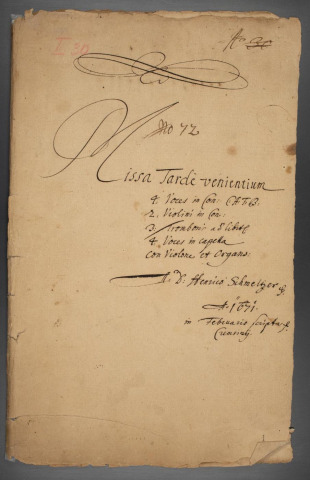 I, 20
No 72
Missa Tarde venientium
4. Voces in Con: CATB.
2. Violini in Con:
3. Tromboni ad libit
4. Voces in capella
con Violone et Organo.
A D: Henrico Schmeltzer
A. 1671.
in Februario scripta